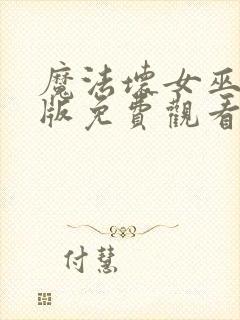 魔法壞女巫
版免費觀看
付慧